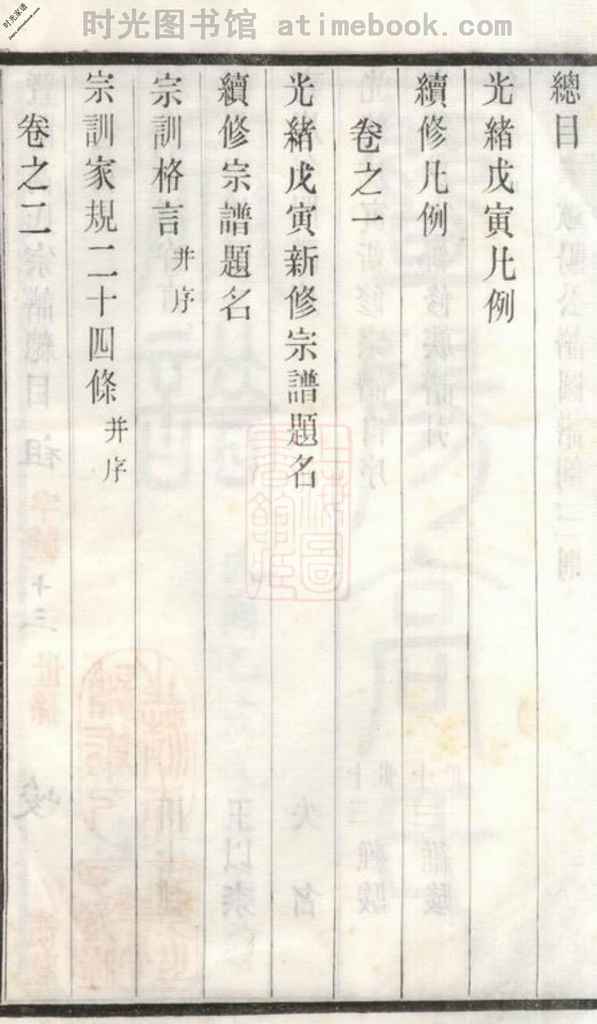 时光图书馆 atimebook.com
时光家谱
www.atimebook.com
總目
光緒戊寅凡例
續修凡例
卷之一
光緒戊寅新修宗譜題名
續修宗譜題名
宗訓格言 并序
宗訓家規二十四條 并序
卷之二